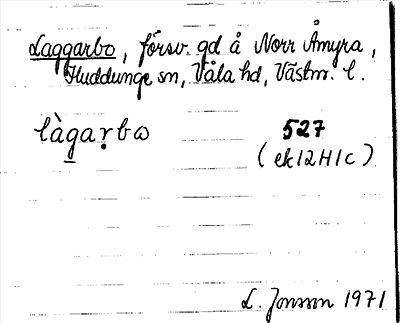 Laggarbo, försv. gd å Norr Åmyra,
Huddunge sn, Våla hd, Västm. l.
làgaṛbω 527
(ek 12H1c)
L. Jonsson 1971